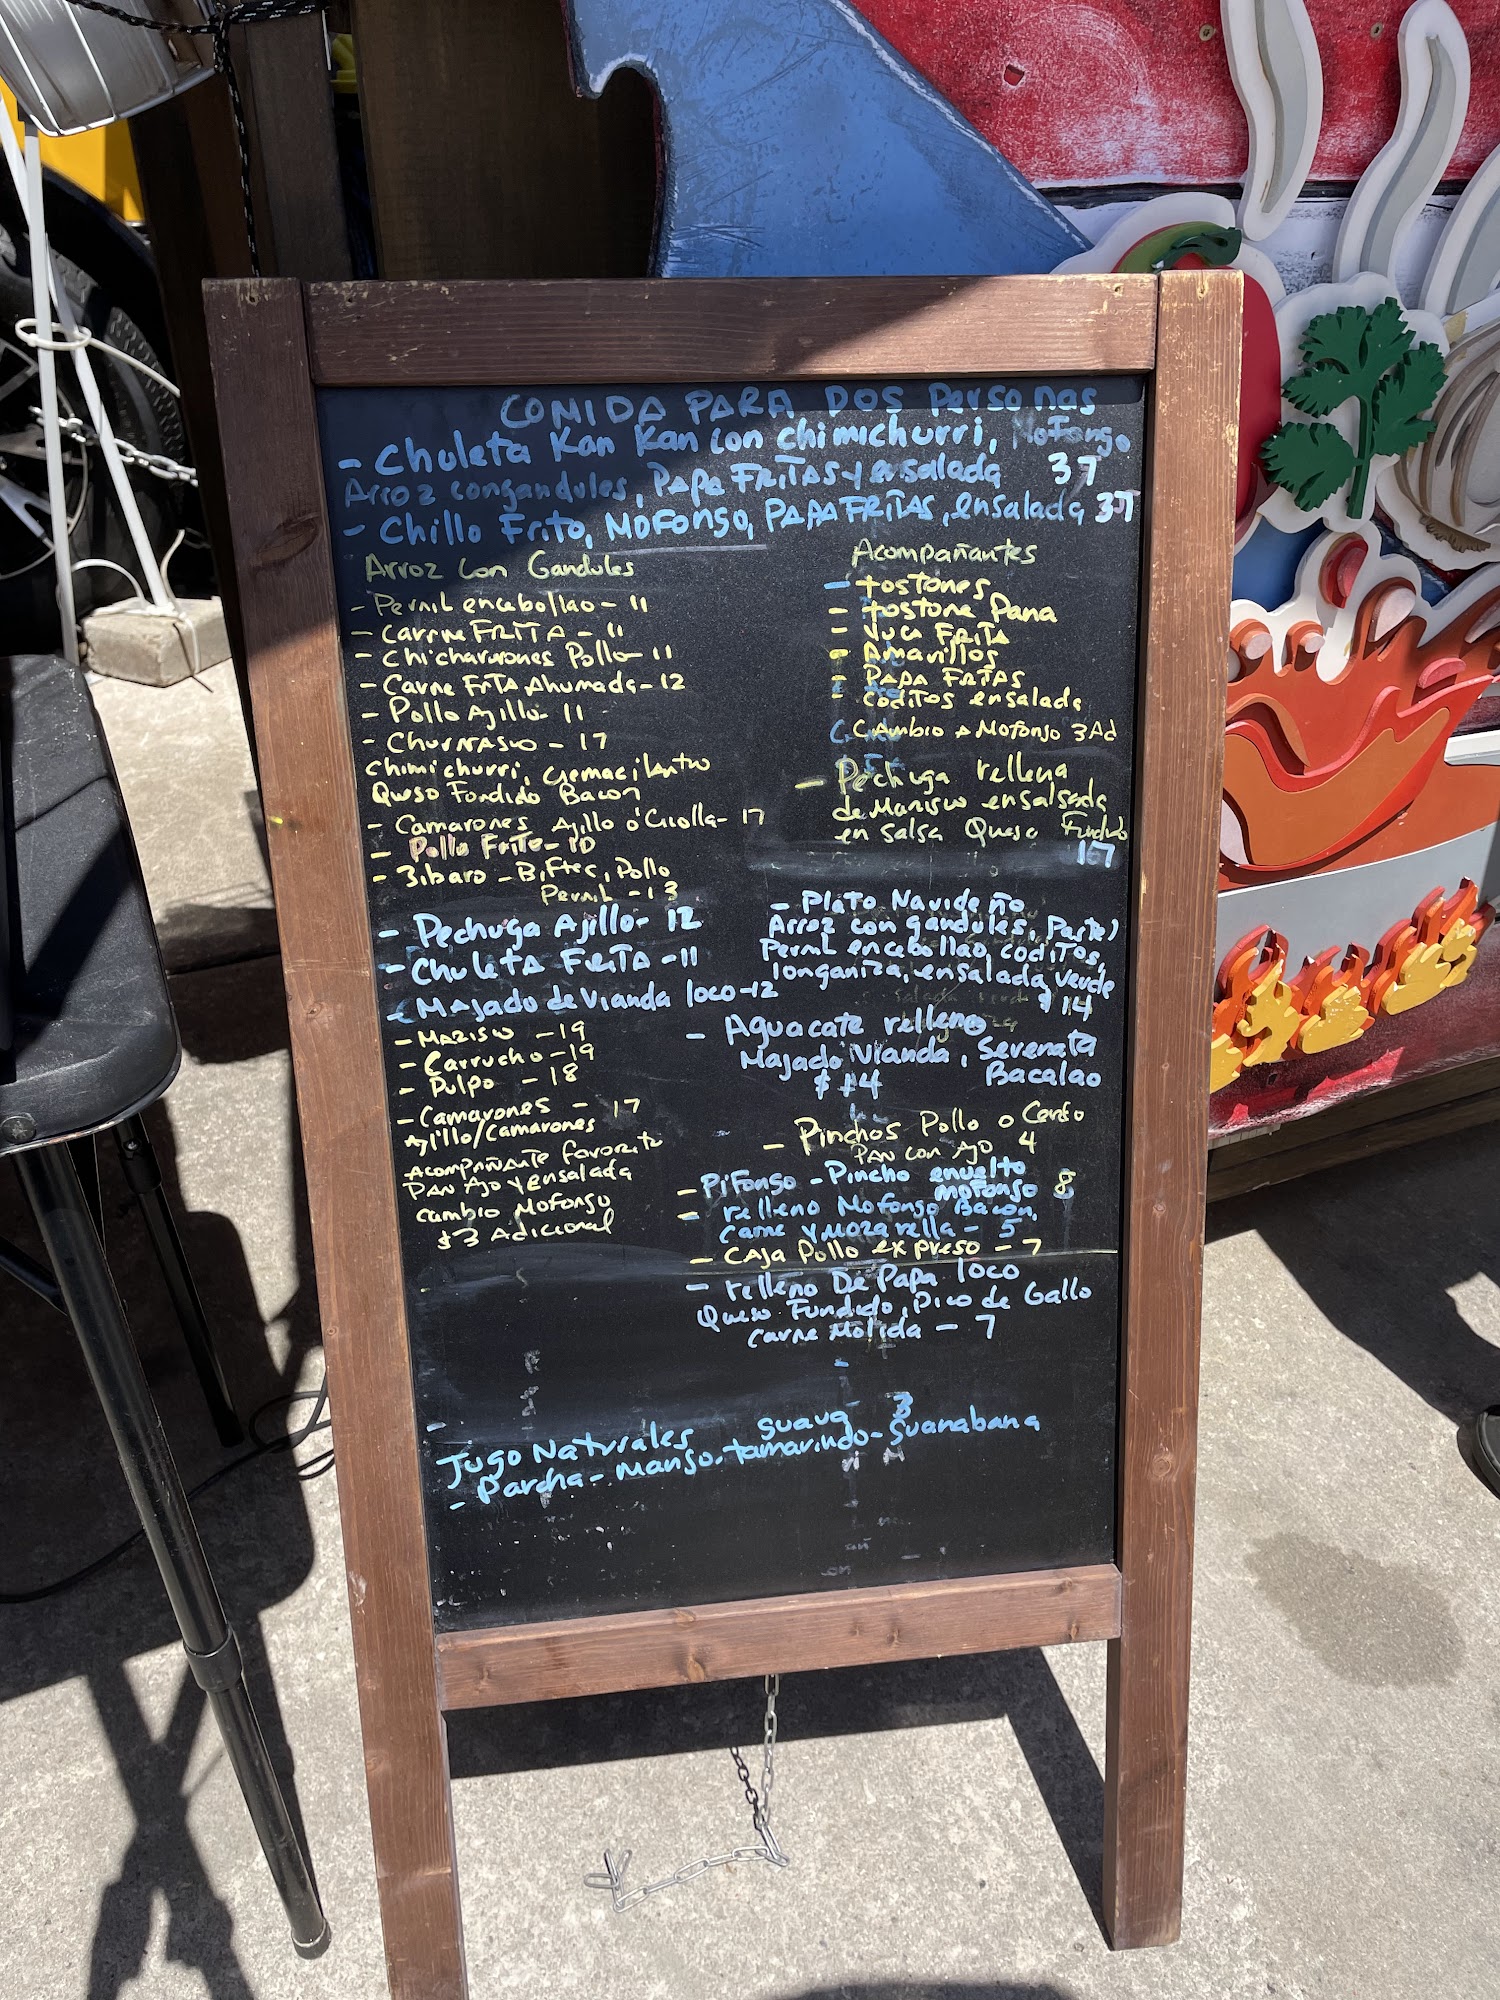 COMIDA PARA DOS Personas
- Chuleta Kan Kan con chimichurri, Mofongo
Arroz con gandules, PAPA FRITAS y ensalada 37
- Chillo Frito, MOFONGO, PAPA FRITAS, ensalada 37
Arroz con Gandules
- Pernil encebollao - 11
- Carne FRITA - 11
- Chicharrones Pollo - 11
- Carne FritA Ahumada - 12
- Pollo Ajillo - 11
- Churrasco - 17
Chimichurri, cremacilantro
Queso Fondido Bacon
- Camarones Ajillo o Criolla - 17
- Pollo Frito - 10
- Jibaro - Biftec, Pollo
Pernil - 13
- Pechuga Ajillo - 12
- Chuleta FRITA - 11
- MAJado de Vianda loco - 12
- MARISCO - 19
- Carrucho - 19
- Pulpo - 18
- Camarones - 17
Ajillo/Camarones
Acompañante favorito
PAN AJO y ensalada
cambio Mofongo
$3 Adicional
Acompañantes
- tostones
- tostone Pana
- Yuca FRITA
- Amarillos
- PAPA FRITAS
- coditos ensalada
Cambio A Mofongo 3 Ad
- Pechuga rellena
de Marisco ensalsada
en salsa Queso Fundido
17
- Plato Navideño
Arroz con gandules, Pastel
Pernil encebollao, coditos,
longaniza, ensalada verde
$14
- Aguacate relleno
Majado Vianda, Serenata
$14 Bacalao
- Pinchos Pollo o Cerdo
PAN con AJO 4
- PiFongo - Pincho envuelto
mofongo 8
- relleno Mofongo Bacon,
carne y mozarella - 5
- CAJA Pollo expreso - 7
- relleno De Papa loco
Queso Fundido, Pico de Gallo
carne Molida - 7
Jugo Naturales 3
- Parcha - mango - tamarindo - Guanabana